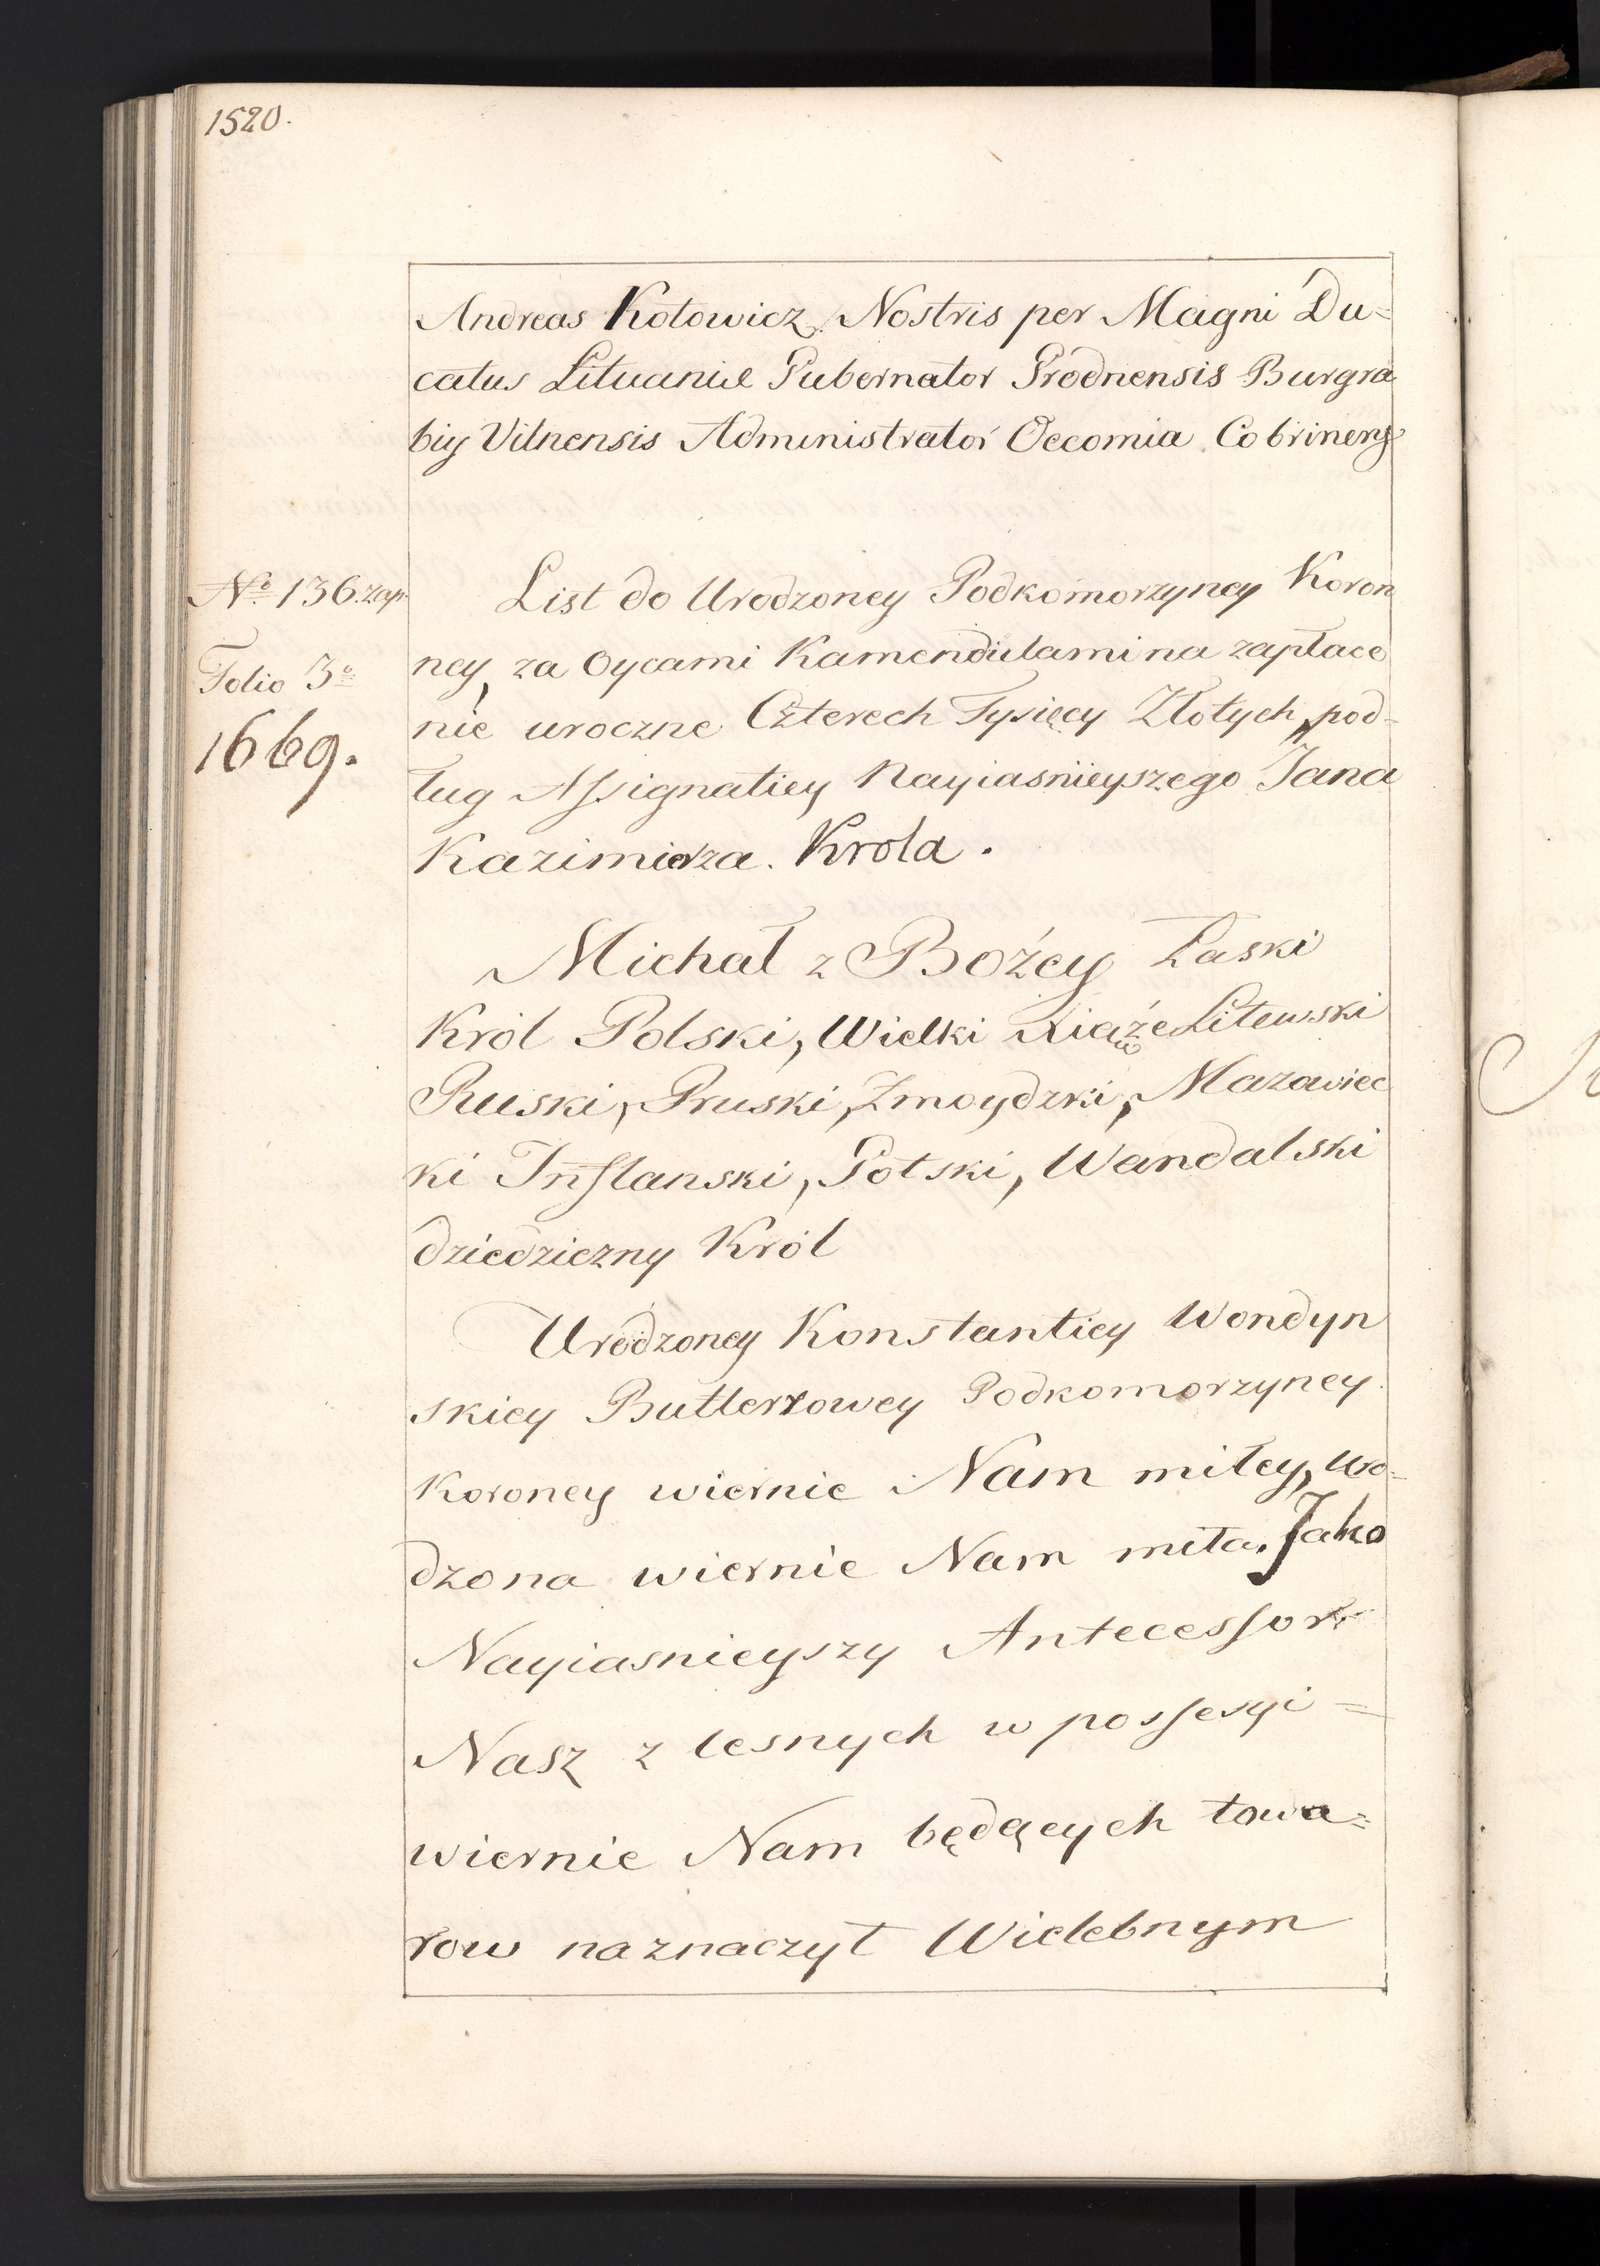 1520.
Andreas Kotowicz, Nostris per Magni Du=
catus Lituaniæ Gubernator Grodnensis Burgra
biy Vilnensis Administrator Oecomia Cobrinens
No 136 zap.
Folio 3o
1669.
List do Urodzoney Podkomorzyney Koron
ney, za Oycami Kamendulami na zapłace
nie uroczne Czterech Tysięcy Złotych, pod-
ług Assignatiey Nayiasnieyszego Jana
Kazimierza. Krola.
Michał z Bożey Łaski
Król Polski, Wielki Xiąże Litewski
Ruski, Pruski, Zmoydzki, Mazowiec
ki Inflanski, Gotski, Wandalski
dziedziczny Król
Urodzoney Konstantiey Wondyn
skiey Butlerowey Podkomorzyney
Koroney wiernie Nam miłey, Uro-
dzona wiernie Nam miła. Jako
Nayiasnieyszy Antecessor
Nasz z lesnych w possesyi =
wiernie Nam będących towa=
row naznaczył Wielebnym